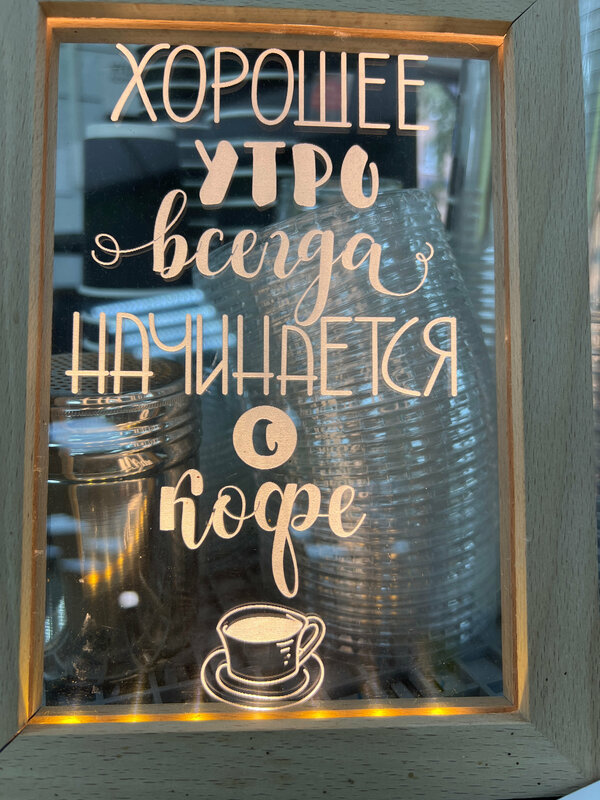 ХОРОШЕЕ
УТРО
всегда
НАЧИНАЕТСЯ
С
кофе